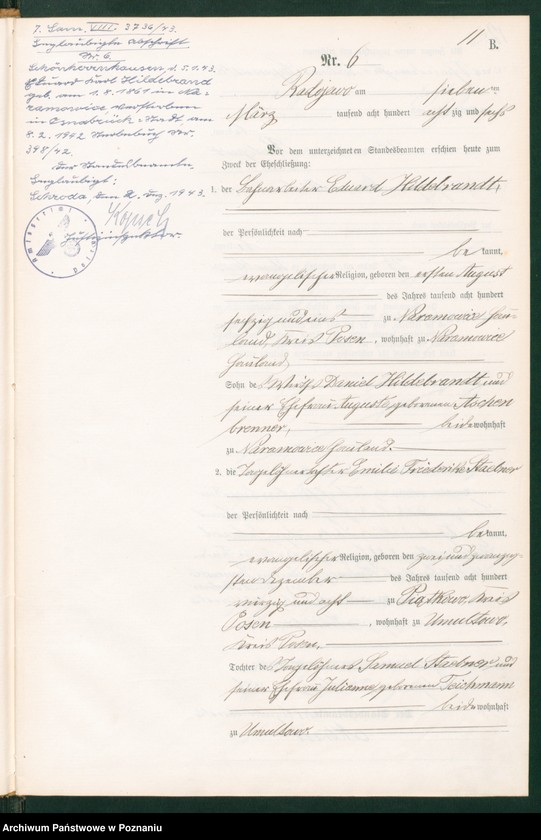 11 B.
Nr. 6
7. Sam. VIII. 3736/43.
Beglaubigte Abschrift
Nr. 6
d. 5.1.43.
Eduard Karl Hildebrand
geb. am 1.8.1861 in Na-
ramowice verstorben
in Osnabrück am
8.2.1942 Sterbebuch Nr.
348/42.
Der Standesbeamte.
Beglaubigt:
Schroda, den 2. Dez. 1943.
Justizinspektor.
Radojewo am sieben ten
März tausend acht hundert acht zig und sechs
Vor dem unterzeichneten Standesbeamten erschien heute zum
Zweck der Eheschließung:
1. der Eduard Hildebrandt,
der Persönlichkeit nach
be kannt,
evangelischer Religion, geboren den ersten August
des Jahres tausend acht hundert
sechzig und eins zu Naramowice Hau-
land, Kreis Posen, wohnhaft zu Naramowice
Hauland,
Sohn des Wirths Daniel Hildebrandt und
seiner Ehefrau Auguste, geborenen Aschen
brenner, beide wohnhaft
zu Naramowice Hauland.
2. die Tagelöhnertochter Emilie Friederike Stelner
der Persönlichkeit nach
be kannt,
evangelischer Religion, geboren den zwei und zwanzig
sten Dezember des Jahres tausend acht hundert
und acht zu Piątkowo, Kreis
Posen, wohnhaft zu Umultowo,
Kreis Posen,
Tochter des Tagelöhners Samuel Stelner und
seiner Ehefrau Julianne, geborenen Teichmann
beide wohnhaft
zu Umultowo.
Archiwum Państwowe w Poznaniu